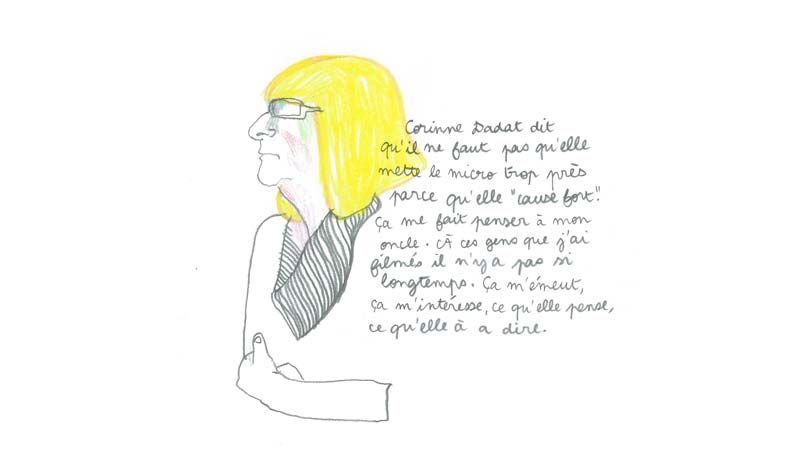 Corinne Dadat dit
qu'il ne faut pas qu'elle
mette le micro trop près
parce qu'elle "cause fort".
Ça me fait penser à mon
oncle. À ces gens que j'ai
filmés il n'y a pas si
longtemps. Ça m'émeut,
ça m'intéresse, ce qu'elle pense,
ce qu'elle à a dire.